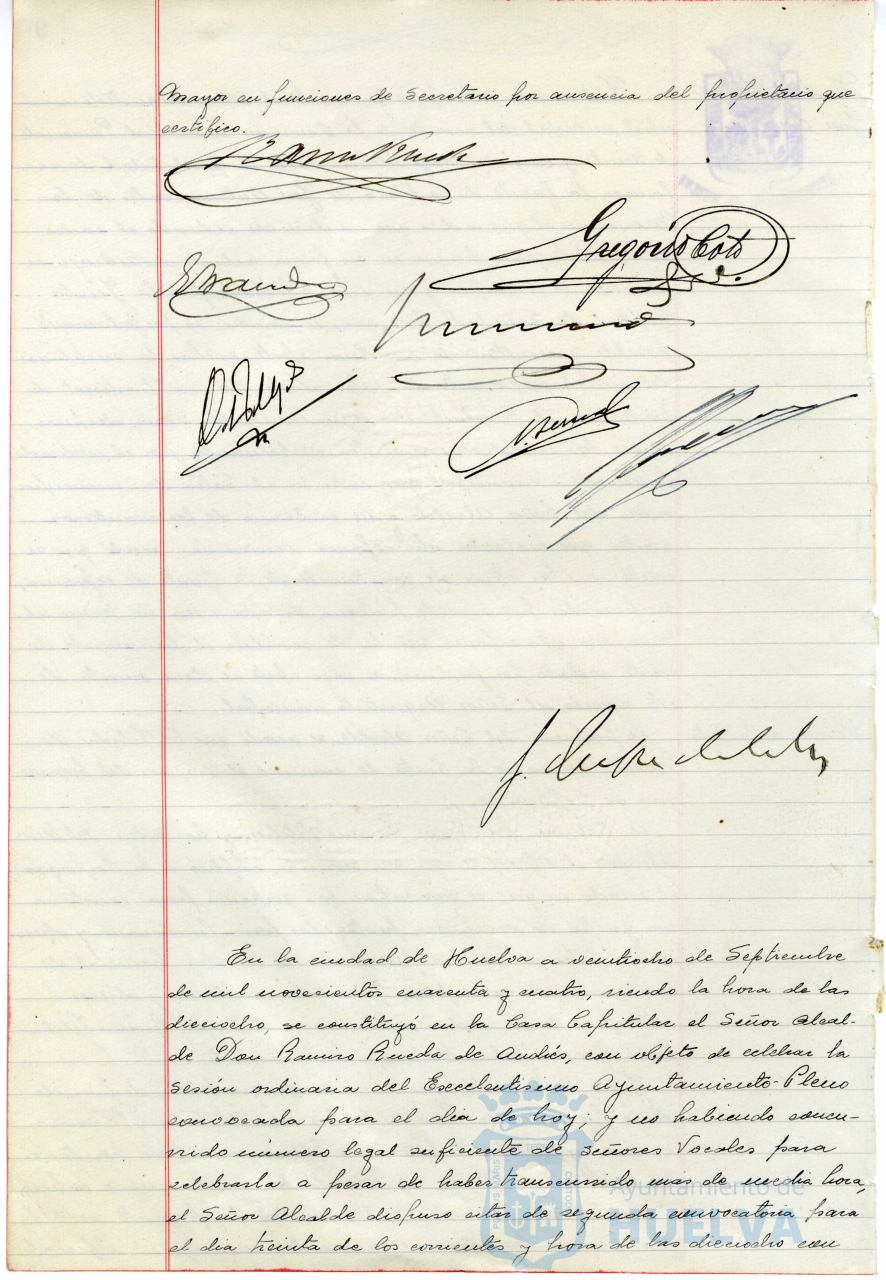 Mayor en funciones de Secretario por ausencia del propietario que
certifico.
Gregorio Coto
En la ciudad de Huelva a veintiocho de Septiembre
de mil novecientos cuarenta y cuatro, siendo la hora de las
dieciocho, se constituyó en la Casa Capitular el Señor Alcal-
de Don Ramiro Rueda de Andiés, con objeto de celebrar la
sesión ordinaria del Excelentísimo Ayuntamiento-Pleno
convocada para el día de hoy; y no habiendo concu-
rrido número legal suficiente de señores Vocales para
celebrarla a pesar de haber transcurrido mas de media hora,
el Señor Alcalde dispuso citar de segunda convocatoria para
el dia treinta de los corrientes y hora de las dieciocho con
Ayuntamiento de
HUELVA